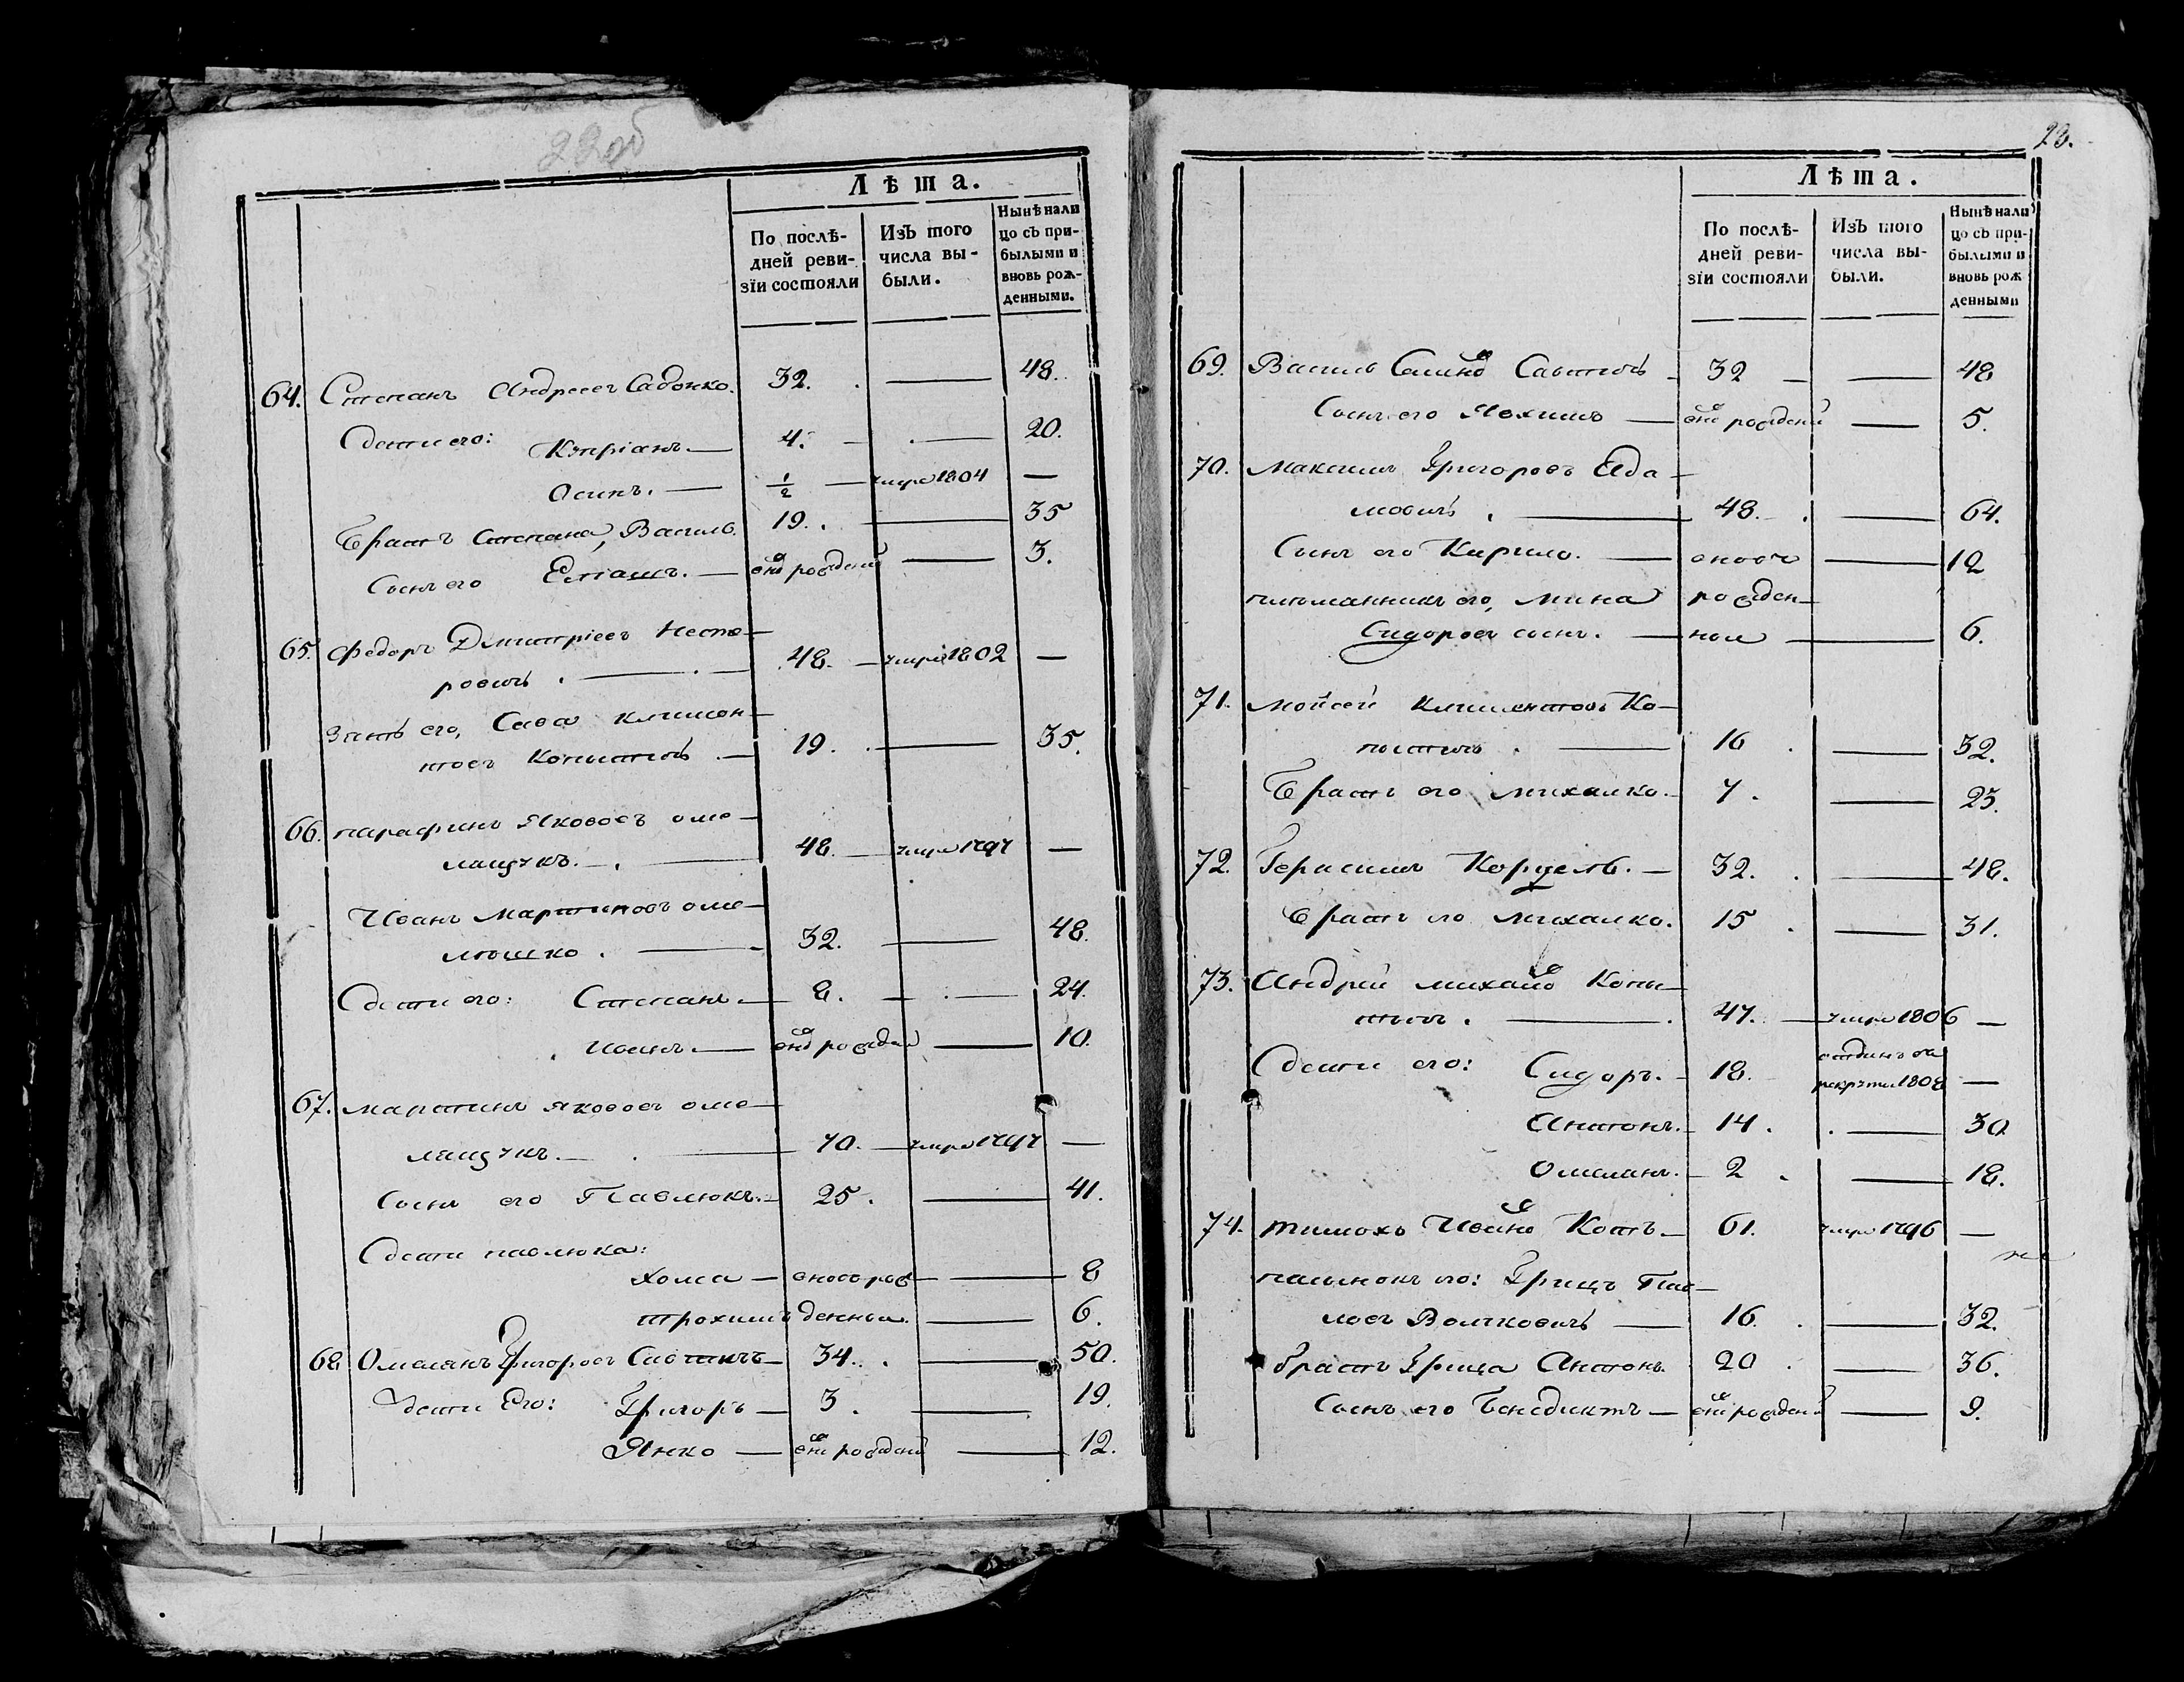 22об
Лѣта.
По послѣ-
дней реви-
зїи состояли
Изъ того
числа вы-
были.
Нынѣ нали
цо съ при-
былыми и
вновь рож-
денными.
64. Степанъ Андреевъ Савонко. 32. — 48.
Сдети его: Кипріянъ. — 4. — 20.
Осипъ. — 1/2 — умре 1804 —
Братъ Степана, Василь. 19. — 35
Сынъ его Елїашъ. — внѣ рожденъ — 3.
65. Федоръ Дмитріевъ Несте-
ровичъ. — 48. — умре 1802 —
Зять его, Сава Климон-
товъ Копытичъ. — 19. — 35.
66. Парафинъ Яковевъ оме-
лянчукъ. — 48. — умре 1797 —
Иванъ Мартиновъ оме-
люшко. — 32. — 48.
Сдети его: Степанъ — 8. — 24.
Иванъ. — рожден — 10.
67. Мартинъ яковевъ оме-
лянчукъ. — 70. — умре 1797 —
Сынъ его Павлюкъ. — 25. — 41.
Сдети павлюка:
Хома — вновь рож — 8
трохимъ денныи. — 6.
68 Омелянъ Григоревъ Савчикъ — 34. — 50.
Сдети Его: Григоръ — 3. — 19.
Янко — рожденъ — 12.
23.
Лѣта.
По послѣ-
дней реви-
зїи состояли
Изъ того
числа вы-
были.
Нынѣ нали
цо съ при-
былыми и
вновь рож
денными
69. Василь Савтичъ — 32 — 48
Сынъ его Яохимъ — рожденъ — 5.
70. Максимъ Григоровъ Ада-
мовичъ. — 48. — 64.
Сынъ его Кирило. — вновь — 12
племянникъ его, Мина рожден-
Сидоровъ сынъ. — ной — 6.
71. Мойсей Климентовъ Ко-
пытичъ. — 16. — 32.
Братъ его михалко. — 7. — 23.
72. Герасимъ Корцель. — 32. — 48.
Братъ его Михалко. 15. — 31.
73. Андрей михайло Копы-
тичъ. — 47. — умре 1806 —
Сдети его: Сидоръ. — 18. отданъ въ
рекруты 1808 —
Антонъ. — 14. — 30
Омелянъ. — 2. — 18.
74. тимохъ Ивано Котъ — 61. умре 1796 —
пасынокъ его: Грицъ Пав-
ловъ Волчковичъ — 16. — 32.
братъ Грица Антонъ. 20. — 36.
Сынъ его Бенедиктъ — рожденъ — 9.